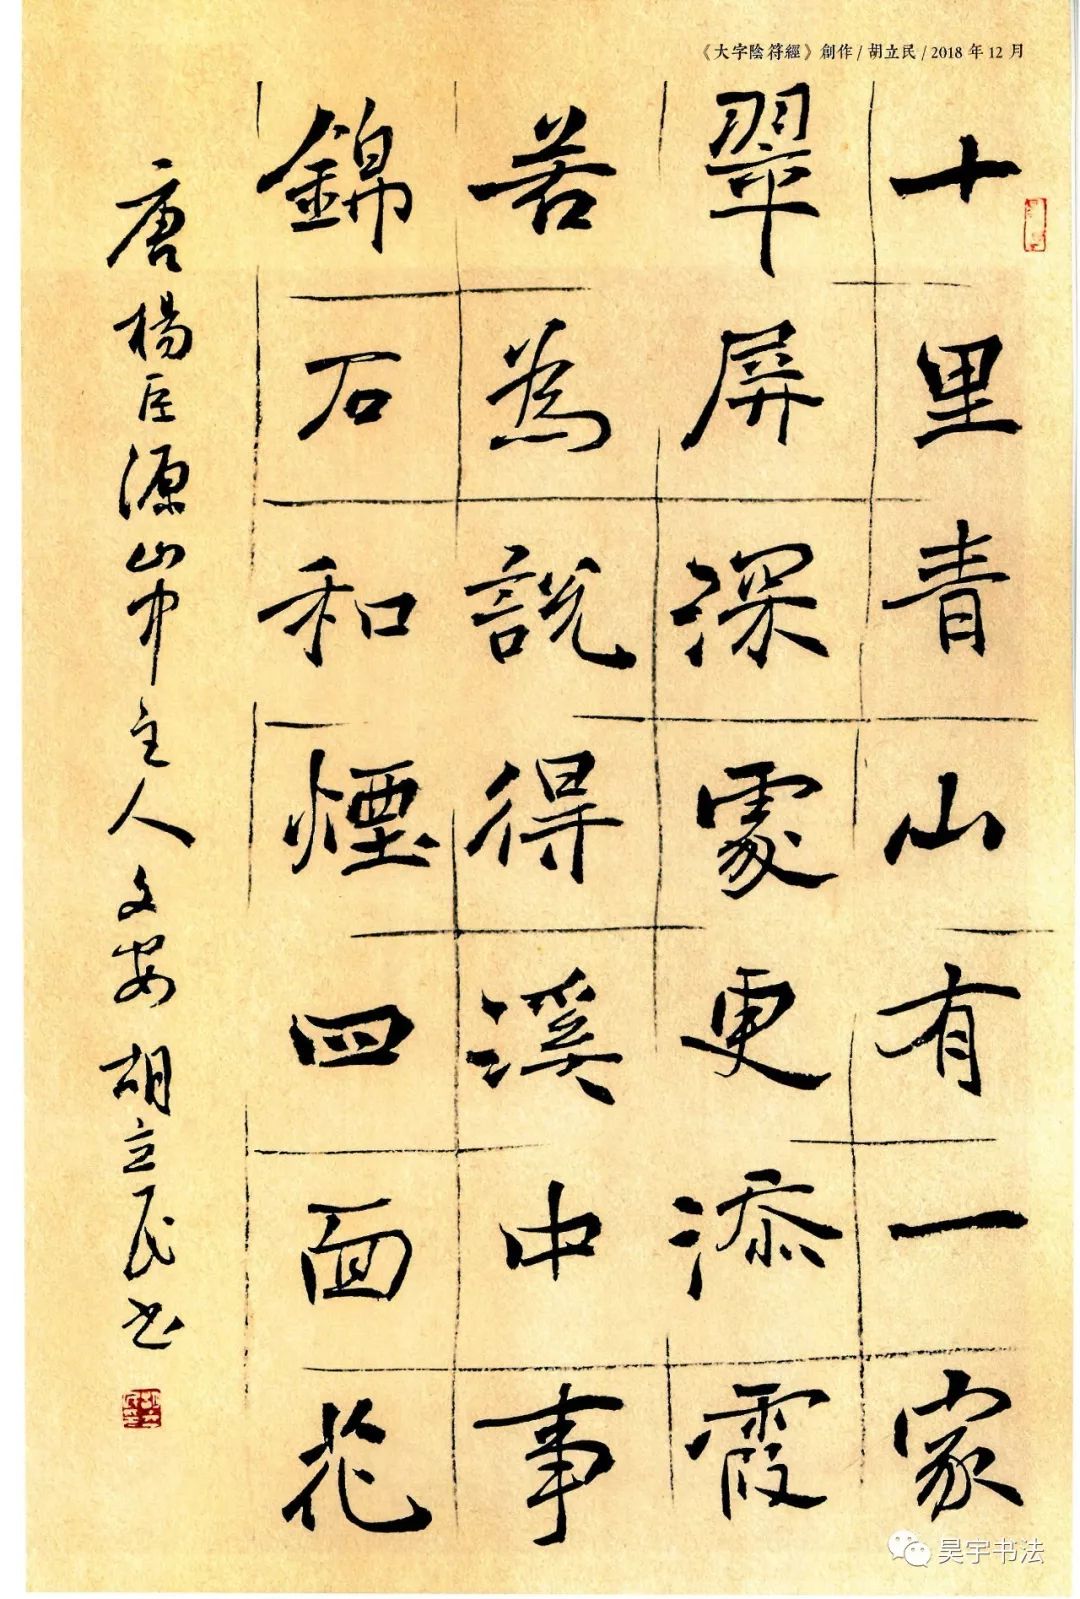 《大字陰符經》創作/胡立民/2018年12月
十里青山有一家
翠屏深處更添霞
若為說得溪中事
錦石和煙四面花
唐楊巨源山中主人文安胡立民书
昊宇书法